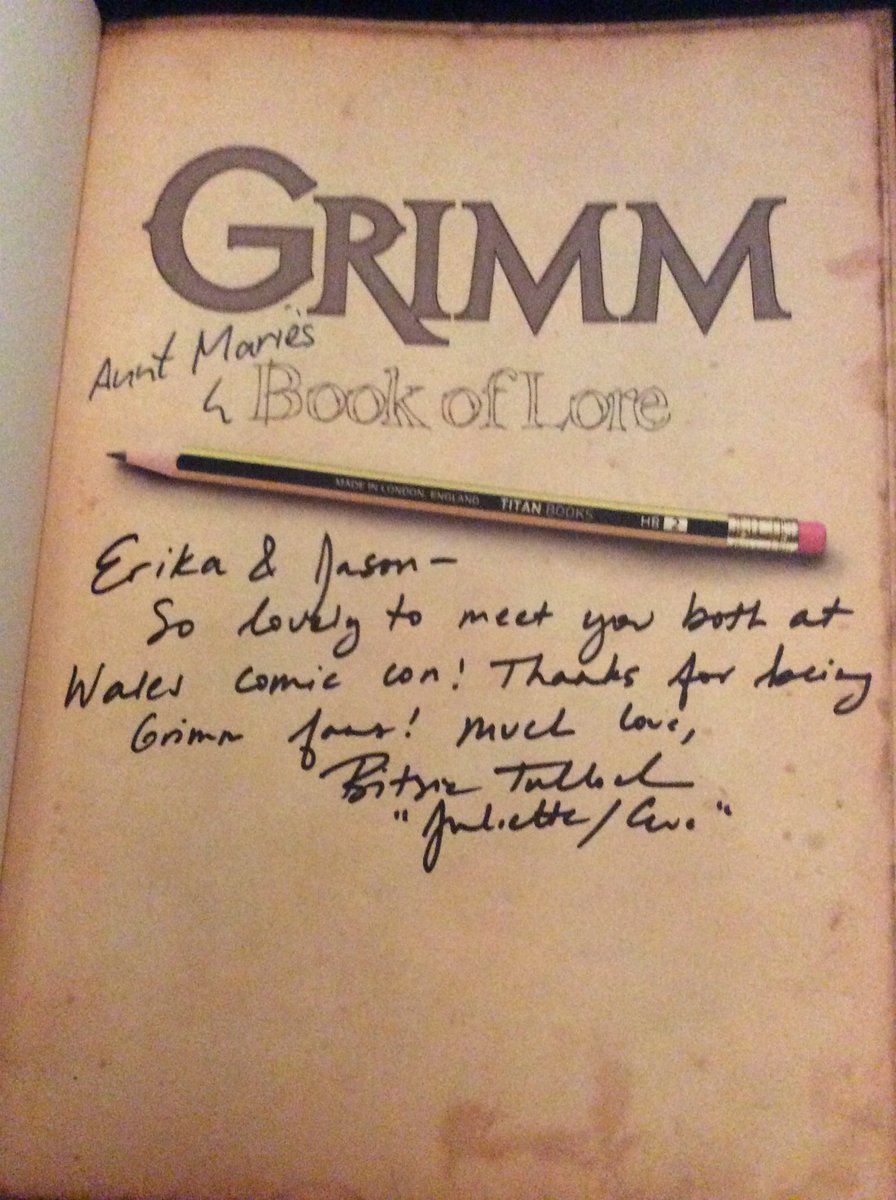 GRIMM
Aunt Marie's
Book of Lore
MADE IN LONDON, ENGLAND TITAN BOOKS HB 2
Erika & Jason—
So lovely to meet you both at
Wales comic con! Thanks for being
Grimm fans! Much love,
Bitsie Tulloch
"Juliette/Eve"